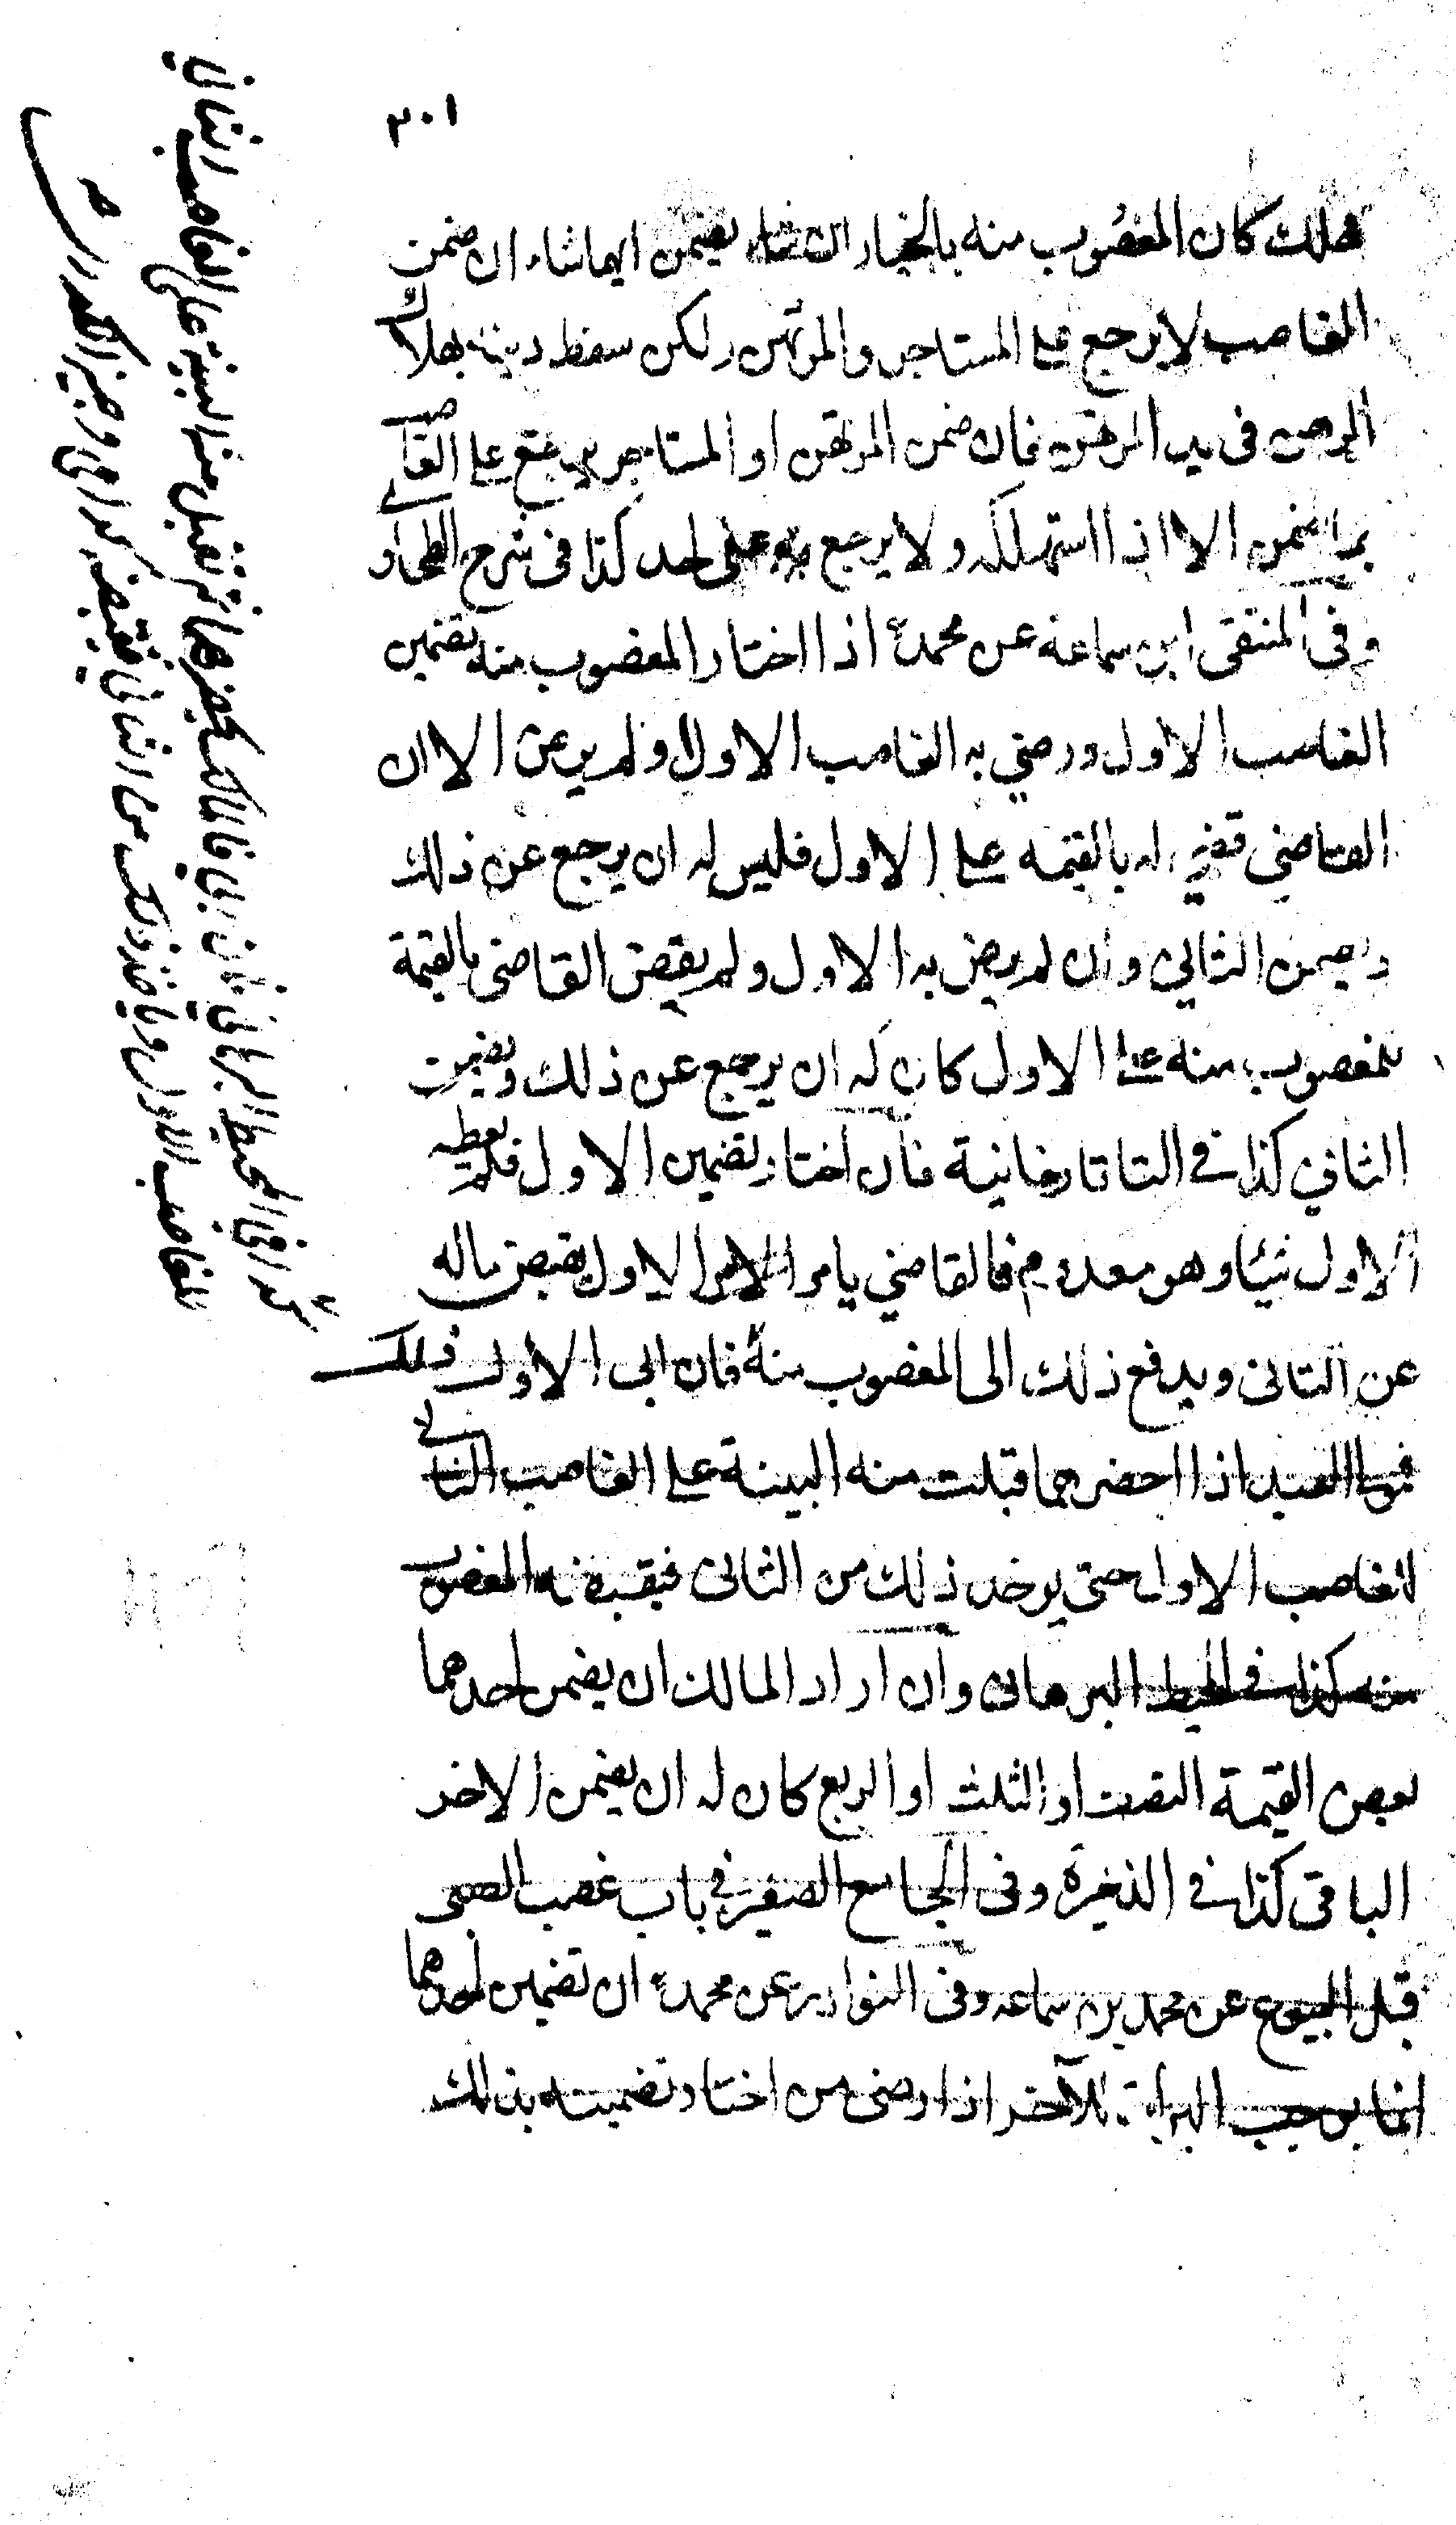 ٣٠١
فهلك كان المغصوب منه بالخيار ان شاء يضمن ايهما شاء ان ضمن
الغاصب لا يرجع على المستاجر والمرتهن ولكن سقط دينه بهلاك
الرهن في يد المرتهن فان ضمن المرتهن او المستاجر يرجع على الغاصب
بما ضمن الا اذا استهلكه ولا يرجع به على احد كذا في شرح الطحاوي
وفي المنتقى ابن سماعة عن محمد اذا اختار المغصوب منه تضمين
الغاصب الاول ورضي به الغاصب الاول او لم يرض الا ان
القاضي قضى له بالقيمة على الاول فليس له ان يرجع عن ذلك
ويضمن الثاني وان لم يرض به الاول ولم يقض القاضي بالقيمة
للمغصوب منه على الاول كان له ان يرجع عن ذلك ويضمن
الثاني كذا في التاتارخانية فان اختار تضمين الاول فلم يعطيه
الاول شيئا وهو معدوم فالقاضي يامر الاول بقبض ماله
عن الثاني ويدفع ذلك الى المغصوب منه فان ابى الاول ذلك
فمولى العبد اذا احضرهما قبلت منه البينة على الغاصب الثاني
للغاصب الاول حتى يوخذ ذلك من الثاني فيقبضه المغصوب
منه كذا في المحيط البرهاني وان اراد المالك ان يضمن احدهما
بعض القيمة النصف او الثلث او الربع كان له ان يضمن الاخر
الباقي كذا في الذخيرة وفي الجامع الصغير في باب غصب الصبي
قبل البيوع عن محمد بن سماعه وفي النوادر عن محمد ان تضمين احدهما
انما يوجب البراءة للآخر اذا رضى من اختار تضمينه بذلك
كذا في المحيط البرهاني فان ابى فالمالك يحضرهما ثم تقبل منه البينة على الغاصب الثاني
للغاصب الاول وياخذ ذلك من الثاني فيقبضه